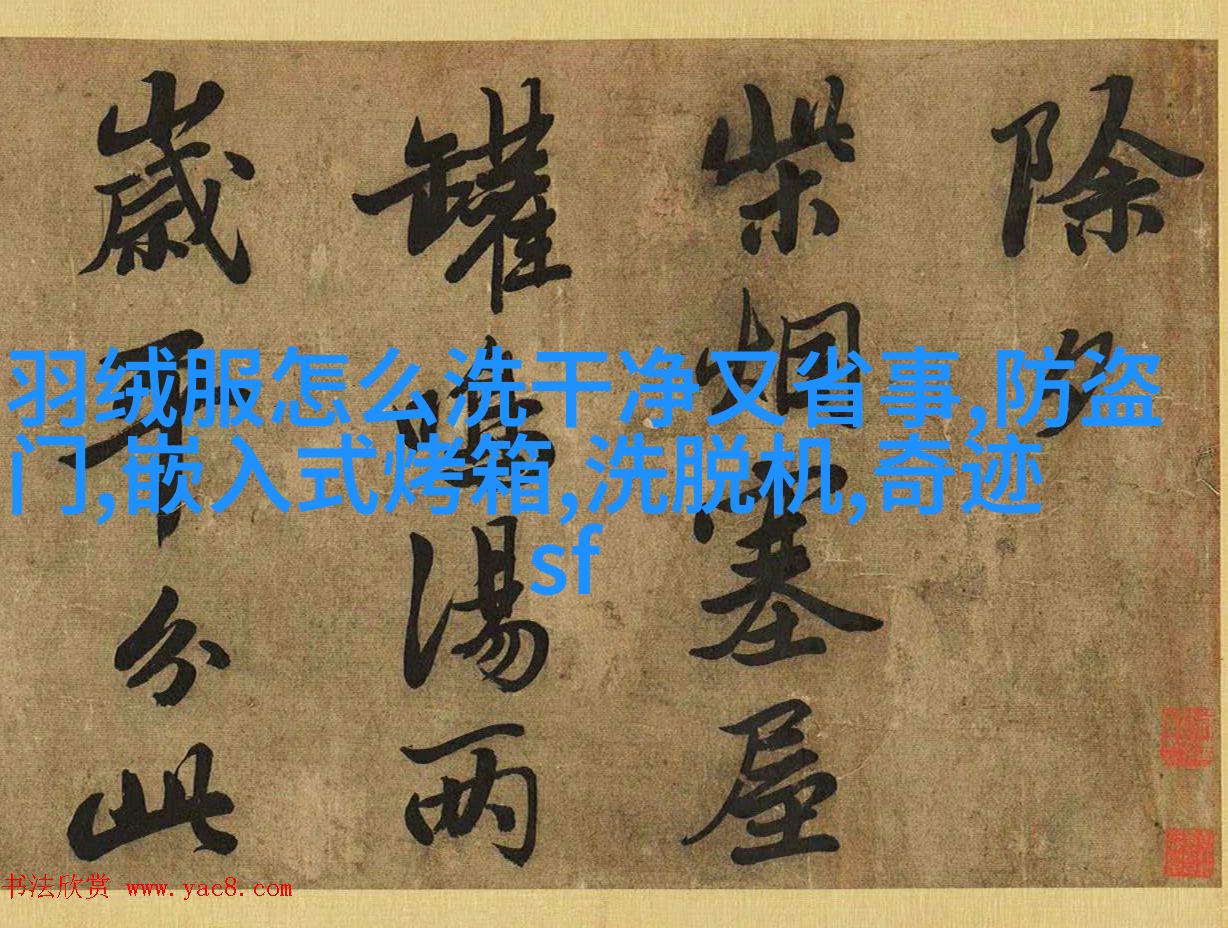 除夕
柴烟塞屋
罐鳴湯兩
歲平分此
羽绒服怎么洗干净又省事,防盗
门,嵌入式烤箱,洗脱机,奇迹
sf
书法欣赏 www.yac8.com